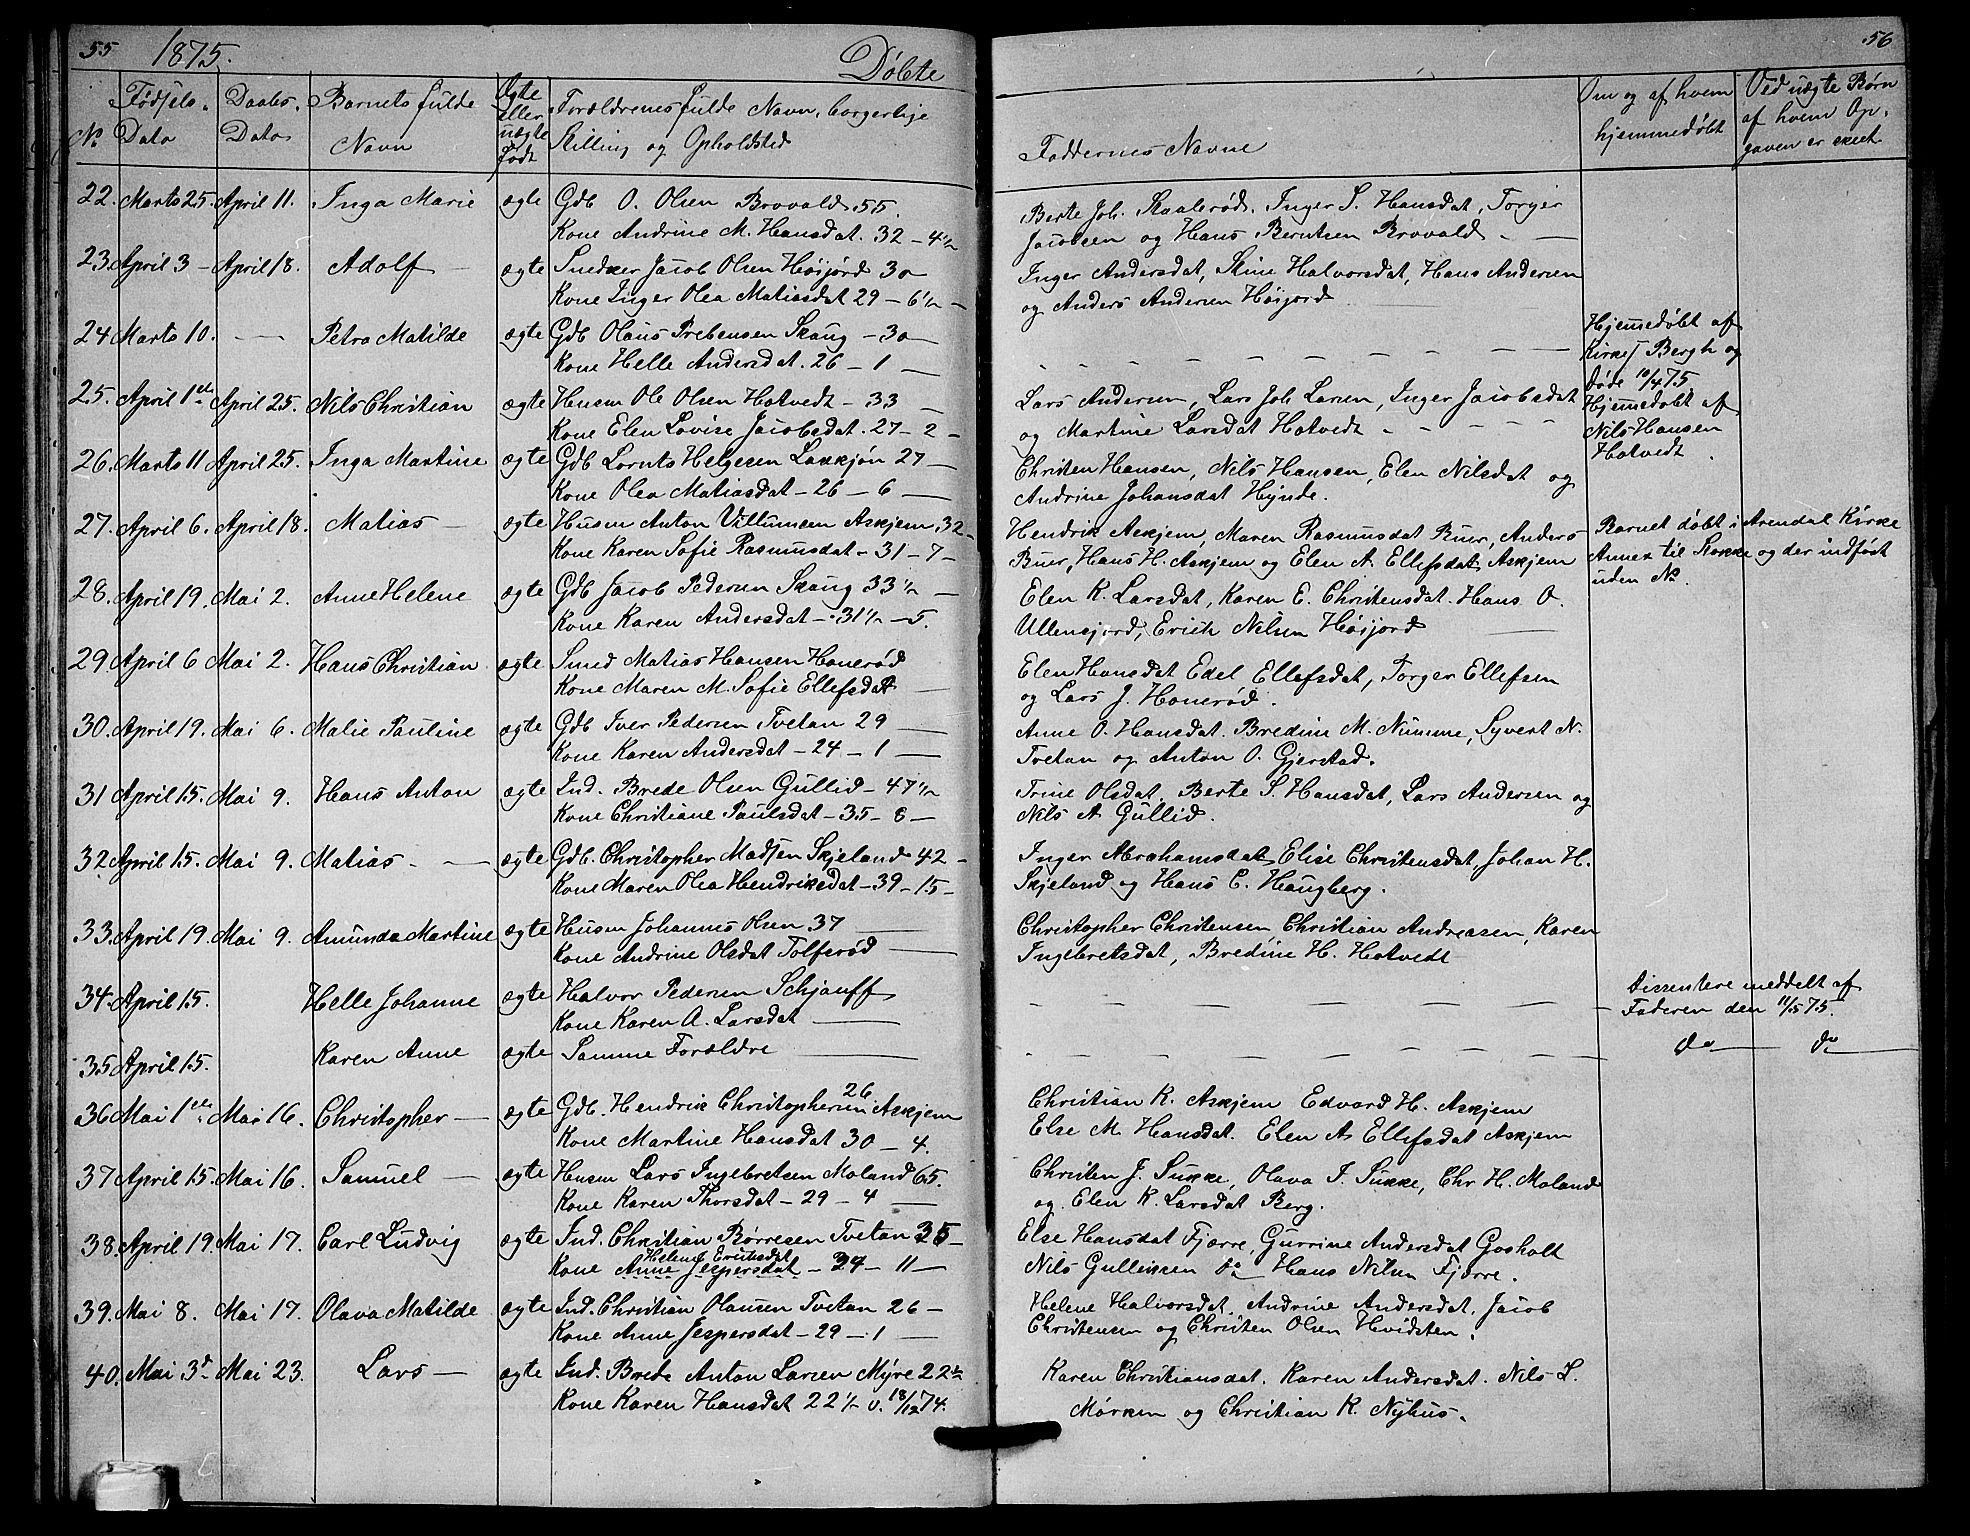 55 1875. Døbte
No. Fødsels-Dato Daabs-Dato Barnets fulde Navn Ægte eller uægte født Forældrenes fulde Navn, borgerlige Stilling og Opholdsted
22. Marts 25. April 11. Inga Marie ægte Gdb O. Olsen Brovald 55.
Kone Andrine M. Hansdat. 32 – 4½
23. April 3 – April 18. Adolf – ægte Snedker Jacob Olsen Høijord 30
Kone Inger Olea Matiasdat 29 – 6½ –
24 Marts 10. – Petra Matilde ægte Gdb Olaus Prebensen Skaug – 30
Kone Helle Andersdat. 26 – 1 –
25. April 1ste April 25. Nils Christian ægte Husm Ole Olsen Hotvedt – 33 –
Kone Elen Lovise Jacobsdat. 27 – 2 –
26. Marts 11 April 25. Inga Martine ægte Gdb Lornts Helgesen Laskjøn 27 –
Kone Olea Matiasdat – 26 – 6 –
27. April 6. April 18. Matias – ægte Husm Anton Villumsen Askjem 32 –
Kone Karen Sofie Rasmusdat – 31 – 7 –
28. April 19. Mai 2. Anne Helene ægte Gdb Jacob Pedersen Skaug 33½ –
Kone Karen Andersdat – 31½ – 5.
29. April 6 Mai 2. Hans Christian ægte Smed Matias Hansen Honerød
Kone Maren M. Sofie Ellefsdat –
30. April 19. Mai 6. Malie Pauline ægte Gdb Iver Pedersen Tvetan 29 –
Kone Karen Andersdat – 24 – 1 –
31 April 15. Mai 9. Hans Anton ægte Ind. Brede Olsen Gullid – 47½
Kone Christiane Paulsdat – 35 – 6 –
32 April 15. Mai 9. Matias – ægte Gdb. Christopher Madsen Skjeland 42 –
Kone Maren Olea Hendriksdat – 39 – 15 –
33. April 19. Mai 9. Amunda Martine ægte Husm Johannes Olsen 37 –
Kone Andrine Olsdat Tolfsrød –
34. April 15. Helle Johanne ægte Halvor Pedersen Schjauff
Kone Karen A. Larsdat –
35 April 15. Karen Anne ægte Samme Forældre –
36 Mai 1ste Mai 16. Christopher – ægte Gdb. Hendrik Christophersen 26 Askjem
Kone Martine Hansdat 30 – 4.
37 April 15. Mai 16. Samuel – ægte Husm Lars Ingebretsen Moland 65.
Kone Karen Thorsdat – 29 – 4 –
38. April 19. Mai 17. Carl Ludvig ægte Ind. Christian Børresen Tvetan 35 –
Helene Eriksdat
Kone Anne Jespersdat – 34 – 11 –
39. Mai 8. Mai 17. Olava Matilde ægte Ind. Christian Olausen Tvetan 26 –
Kone Anne Jespersdat – 29 – 1 –
40. Mai 3d Mai 23. Lars – ægte Ind. Brede Anton Larsen Myre 22½
Kone Karen Hansdat 22½ v. 18/12 74.
56
Faddernes Navne Om og af hvem hjemmedøbt Ved uægte Børn af hvem Opgaven er skeet
Berte Joh. Skaalerød, Inger S. Hansdat, Torger
Jacobsen og Hans Berntsen Brovald –
Inger Andersdat, Stine Halvorsdat, Hans Andersen
og Anders Andersen Høijord
Hjemmedøbt af
Kirkes. Bergh og
døde 10/4 75.
Lars Andersen, Lars Joh. Larsen, Inger Jacobsdat
og Martine Larsdat Hotvedt –
Hjemmedøbt af
Nils Hansen
Hotvedt.
Christen Hansen, Nils Hansen, Elen Nilsdat og
Andrine Johansdat Hynde.
Hendrik Askjem, Maren Rasmusdat Buer, Anders
Buer, Hans H. Askjem og Elen A Ellefsdat Askjem
Barnet døbt i Arendal Kirke
Annex til Stokke og der indført
uden No.
Elen K. Larsdat, Karen E. Christensdat. Hans O.
Ullensjord, Erich Nilsen Høijord
Elen Hansdat Edel Ellefsdat, Torger Ellefsen
og Lars J. Honerød.
Anne O. Hansdat. Bredine M. Numme, Syvert N.
Tvetan og Anton O. Gjerstad.
Trine Olsdat, Berte S. Hansdat, Lars Andersen og
Nils A Gullid.
Inger Abrahamsdat, Elise Christensdat, Johan H.
Skjeland og Hans C. Haugberg.
Christopher Christensen Christian Andreasen, Karen
Ingebretsdat, Bredine H. Hotvedt
Dissentere meddelt af
Faderen den 11/5 75.
do do
Christian K. Askjem Edvard H. Askjem
Else M. Hansdat. Elen A Ellefsdat Askjem
Christen J. Sukke, Olava I. Sukke, Chr H. Moland
og Elen K. Larsdat Berg.
Else Hansdat Fjærre, Gurrine Andersdat Gosholt
Nils Gulliksen do Hans Nilsen Fjærre.
Helene Halvorsdat, Andrine Andersdat, Jacob
Christensen og Christen Olsen Hvidsten.
Karen Christiansdat. Karen Andersdat. Nils L.
Mørken og Christian K. Nyhus.